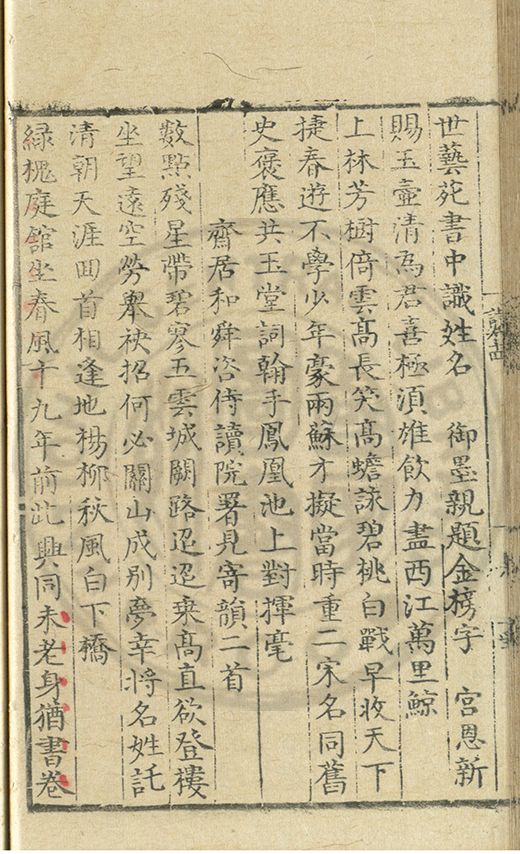 世藝苑書中識姓名　御墨親題金榜字　宮恩新
賜玉壺清為君喜極湏雄飲力盡西江萬里鯨
上林芳樹倚雲髙長笑髙蟾詠碧桃白戰早收天下
捷春遊不學少年豪兩蘇才擬當時重二宋名同舊
史褒應共玉堂詞翰手鳳凰池上對揮毫
齋居和舜咨侍讀院署見寄韻二首
數點殘星帶碧寥五雲城闕路迢迢乗髙直欲登樓
坐望遠空勞舉袂招何必關山成別夢幸將名姓託
清朝天涯回首相逢地楊柳秋風白下橋
緑槐庭舘坐春風十九年前此興同未老身猶書卷